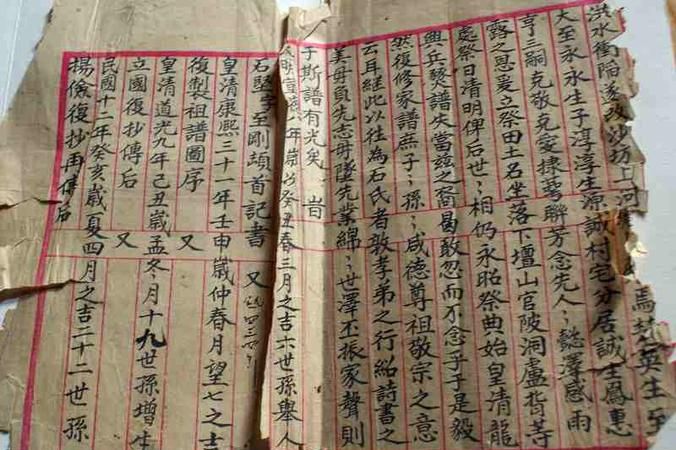 馬楚英生至
洪水衝陷遂改沙坊上河
大至永永生子淳淳生源誠村宅分居誠生鳳惠
亨三嗣克敬克愛棣鄂聯芳念先人懿澤感雨
露之恩爰立祭田土名坐落下壇山官陂洞盧指等
處祭日清明俾后世相仍永昭祭典始皇清龍
興兵燹譜失當兹之裔曷敢忍而不念乎于是毅
然復修家譜庶子孫咸德尊祖敬宗之意
云耳繼此以往為石氏者敦孝弟之行紹詩書之
美毋負先志毋墜先業綿世澤丕振家聲則
于斯譜有光矣 旹
大明宣德八年歲次癸丑春三月之吉六世孫舉人
石堅字至剛頓首記書 又
皇清康熙三十一年壬申歲仲春月望七之吉
復製祖譜圖序 又
皇清道光九年己丑歲孟冬月十九世孫增生
立國復抄傳后 又
民國十二年癸亥歲夏四月之吉二十二世孫
揚儉復抄再傳后